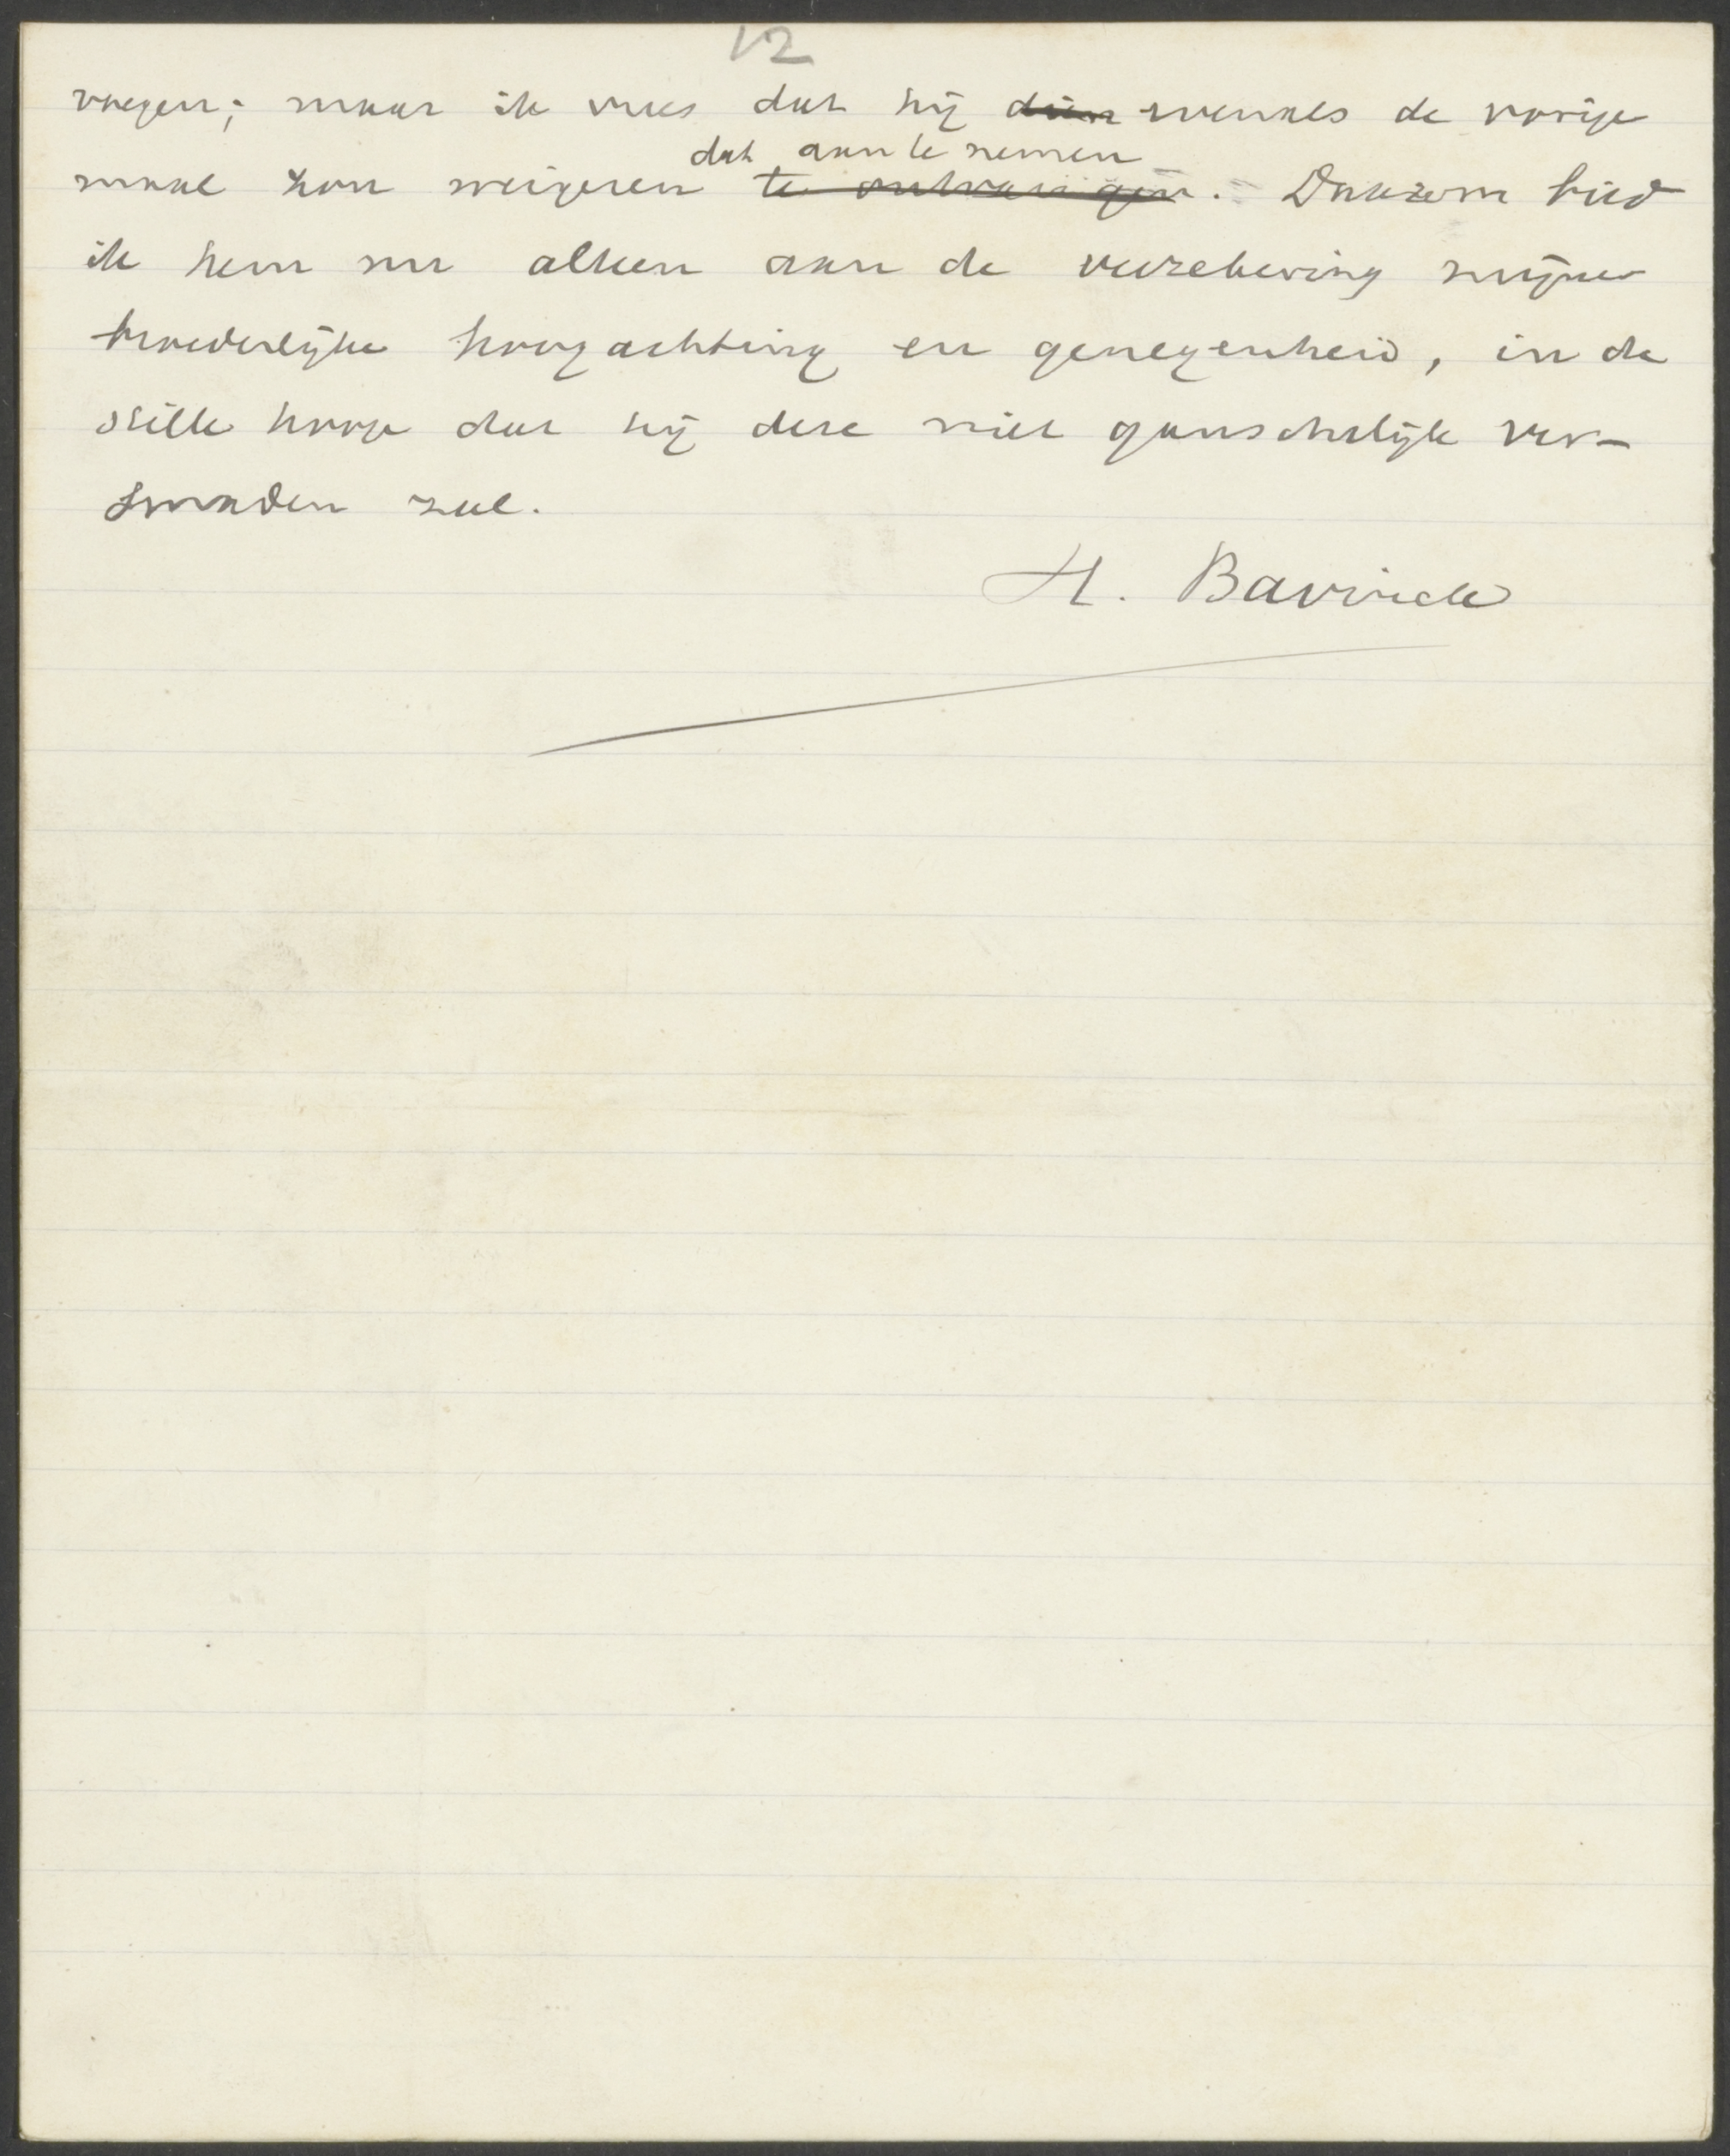 12
voegen; maar ik vrees dat hij dien evenals de vorige
dat aan te nemen
maal zou weigeren te ontvangen. Daarom bied
ik hem nu alleen aan de verzekering mijner
broederlijke hoogachting en genegenheid, in de
stille hoop dat hij deze niet ganschelijk ver-
smaden zal.
H. Bavinck